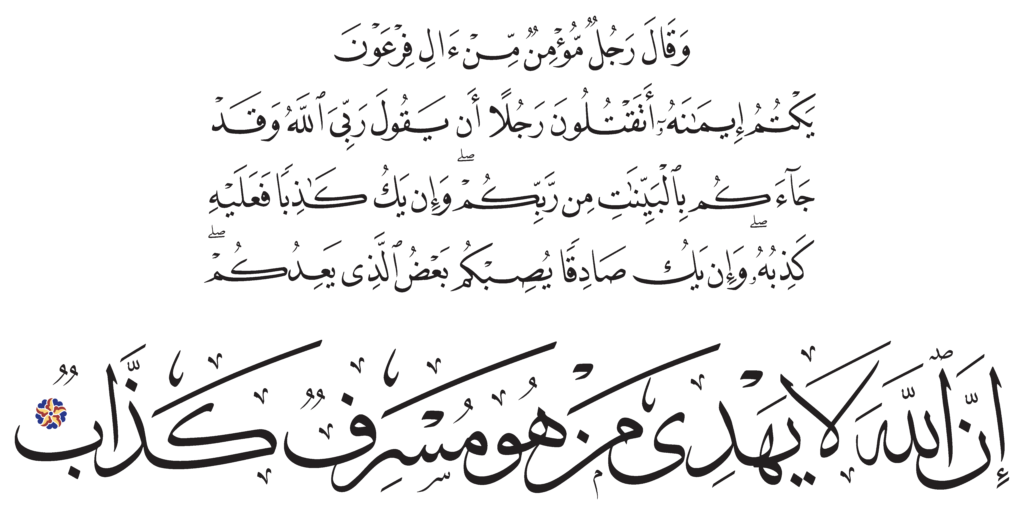 وَقَالَ رَجُلٌ مُّؤْمِنٌ مِّنْ ءَالِ فِرْعَوْنَ
يَكْتُمُ إِيمَٰنَهُۥٓ أَتَقْتُلُونَ رَجُلًا أَن يَقُولَ رَبِّىَ ٱللَّهُ وَقَدْ
جَآءَكُم بِٱلْبَيِّنَٰتِ مِن رَّبِّكُمْ ۖ وَإِن يَكُ كَٰذِبًا فَعَلَيْهِ
كَذِبُهُۥ ۖ وَإِن يَكُ صَادِقًا يُصِبْكُم بَعْضُ ٱلَّذِى يَعِدُكُمْ ۖ
إِنَّ ٱللَّهَ لَا يَهْدِى مَنْ هُوَ مُسْرِفٌ كَذَّابٌ